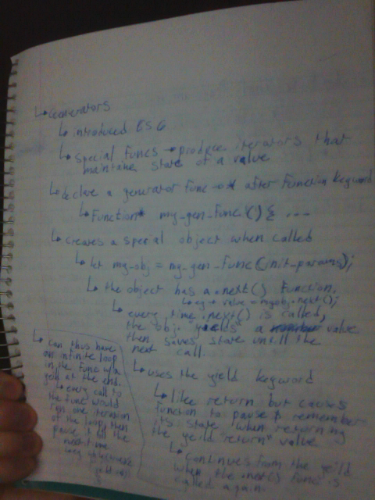 ↳ Generators
↳ introduced ES6
↳ special funcs → produce iterators that
maintane state of a value
↳ declare a generator func → * after function keyword
↳ function* my_gen_func() { ...
↳ creates a special object when called
↳ let my_obj = my_gen_func(init_params);
↳ the object has a .next() function,
↳ eg → value = myobj.next();
↳ every time .next() is called,
the obj "yields" a value
then saves state untill the
next call.
↳ uses the yield keyword
↳ like return but causes
function to pause & remembers
its state when resuming
the yeild "return" value
↳ continues from the yeild
when the next() func is
called again.
↳ Can thus have
an infinite loop
in the func w/ a
yeild at the end.
↳ every call to
the func would
run one iteration
of the loop, then
pause it till the
next one